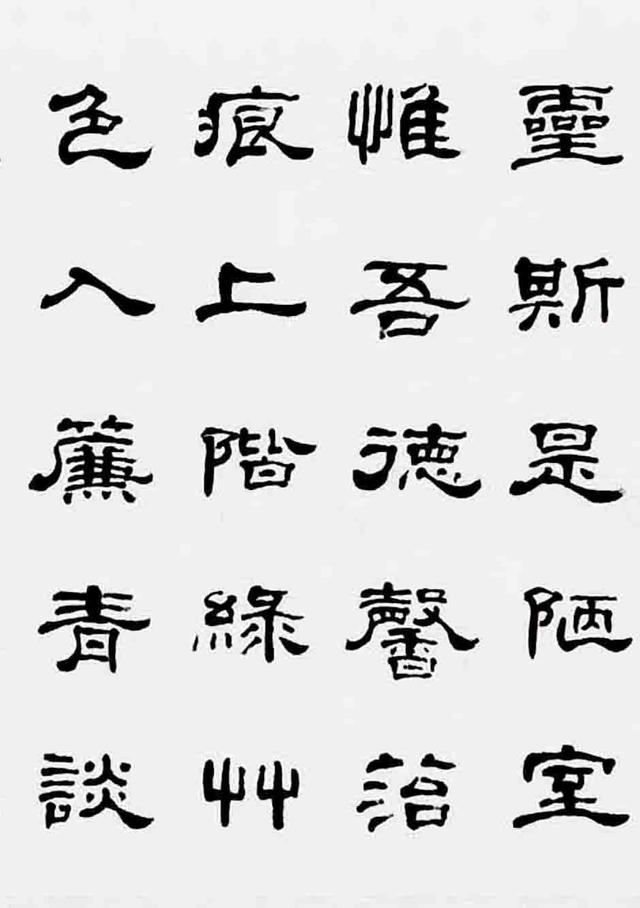 靈斯是陋室
惟吾德馨菭
痕上階綠艸
色入簾青談